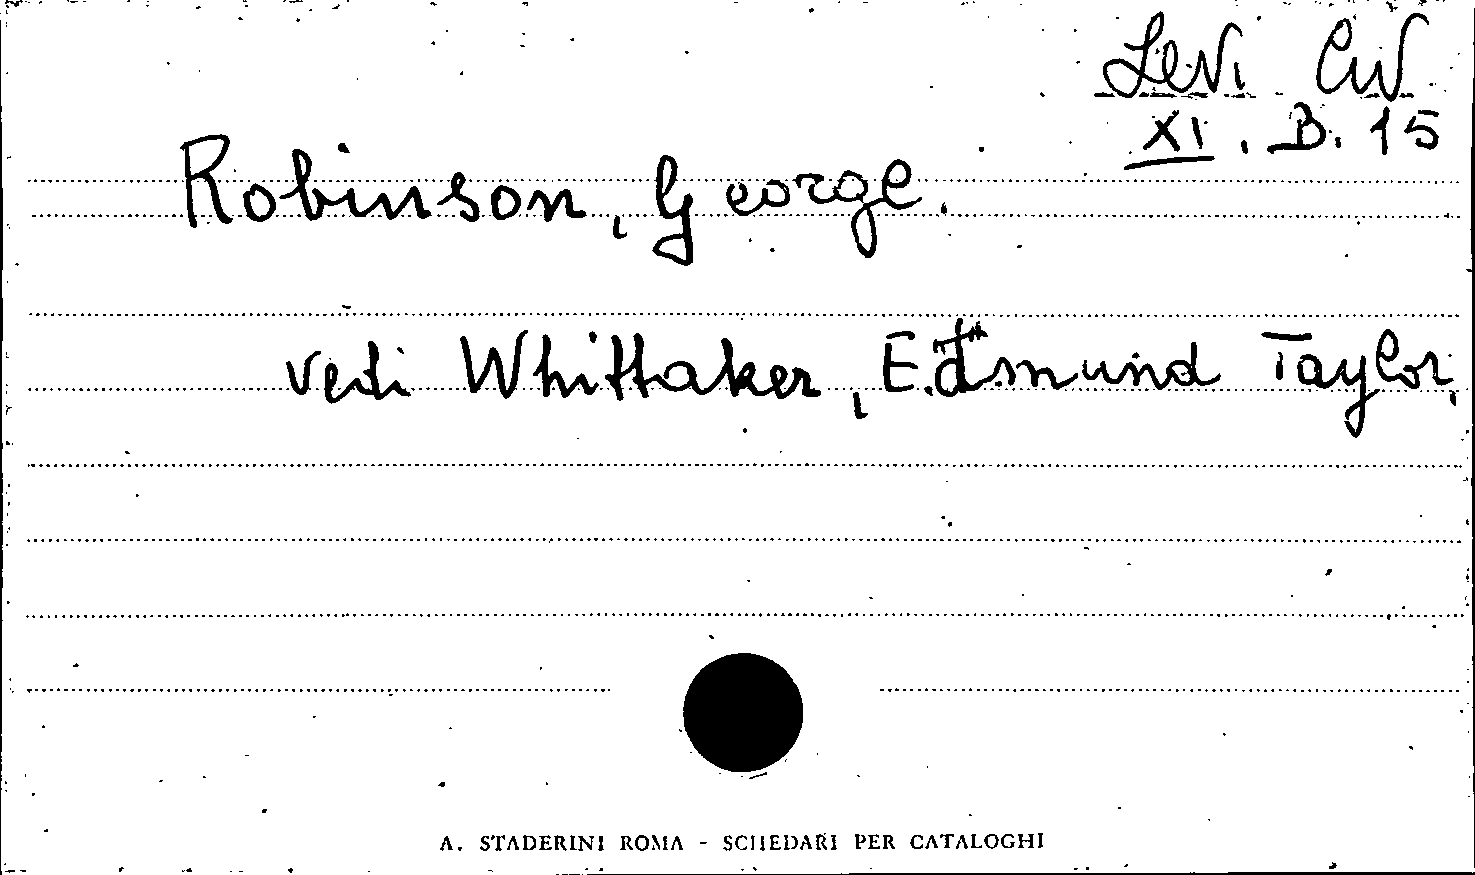 Levi Civ
XI. B. 15
Robinson, George.
vedi Whittaker, Edmund Taylor.
A. STADERINI ROMA - SCHEDARI PER CATALOGHI